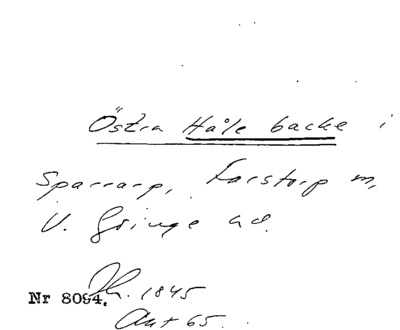 Östra Håle backe i
Sparrarp, Farstorp m,
V. Göinge hd.
Nr 8094. Th. 1845
Akt 65.